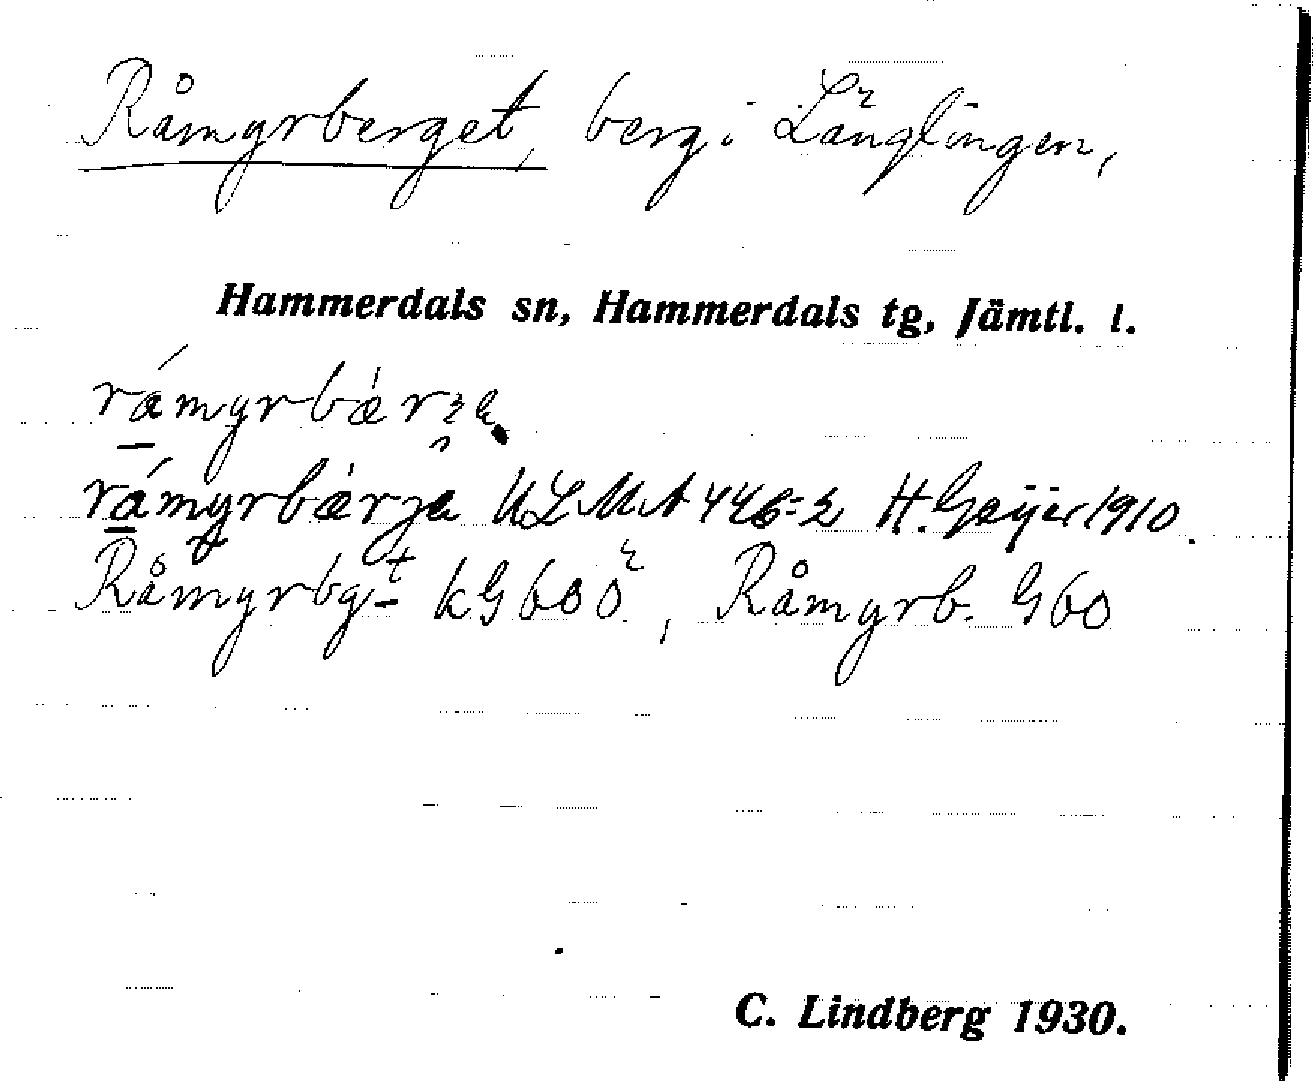 Råmyrberget, berg i Långlingen,
Hammerdals sn, Hammerdals tg, Jämtl. l.
råmyrbærja ULMA 446:2 H. Geijer 1910.
Råmyrbg-t kG 600, Råmyrb. G 60
C. Lindberg 1930.